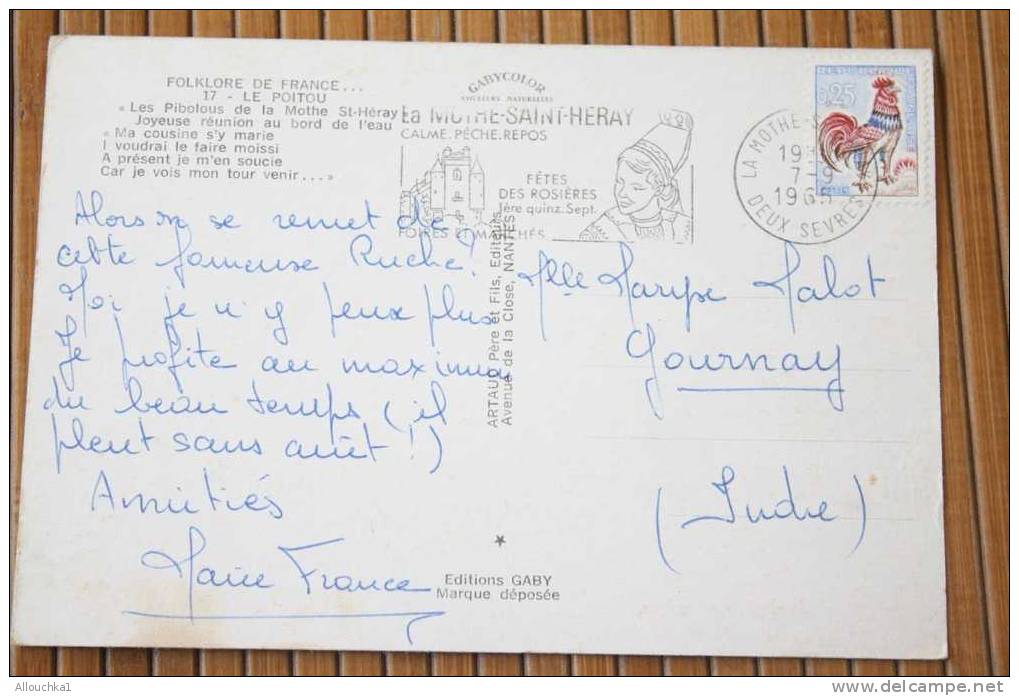 FOLKLORE DE FRANCE...
17 - LE POITOU
« Les Pibolous de la Mothe St-Héray »
Joyeuse réunion au bord de l'eau
« Ma cousine s'y marie
I voudrai le faire moissi
A présent je m'en soucie
Car je vois mon tour venir... »
GABYCOLOR
COULEURS NATURELLES
La MOTHE-SAINT-HERAY
CALME.PÊCHE.REPOS
FÊTES
DES ROSIÈRES
1ère quinz. Sept.
FOIRES ET MARCHÉS
LA MOTHE-S
7-9
1965
DEUX SEVRES
0,25
Alors on se remet de
cette fameuse Ruche?
Moi je n'y peux plus
Je profite au maximum
du beau temps (il
pleut sans arrêt!)
Amitiés
Marie France
ARTAUD Père et Fils, Editeurs
Avenue de la Close, NANTES
Mlle Malot
Gournay
(Indre)
Editions GABY
Marque déposée
Allouchka1
www.delcampe.net